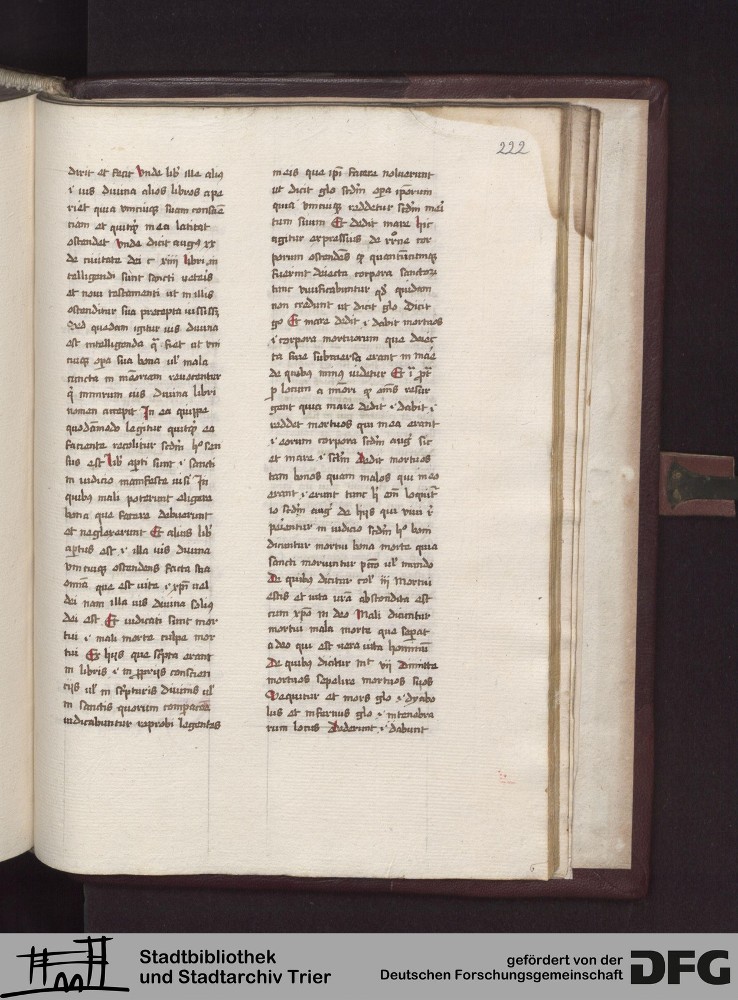 222
dixit et fecit Unde lib' ille aliꝰ
.i. uis diuina alios libros ape
riet quia vnicuiqꝫ suam conscie
ciam et quitqͥd in ea latitat
ostendet Unde dicit augꝰ xx
de ciuitate dei c xiiii libri in
telligendi sunt sancti ueteris
et noui testamenti ut in illis
ostenditur sua precepta iussissꝫ
Qued quedam igitur uis diuina
est intelligenda q̄ fiet ut vni
cuiqꝫ opa sua bona ul' mala
cuncta in memoriam reuocentur
q̄ nimirum uis diuina libri
nomen accepit In ea quippe
quodāmodo legitur quitqͥd ea
faciente recolitur scdm hͦ sen
sus est lib' apti sunt .i. sancti
in iudicio manifeste uisi In
quibꝰ mali poterunt eligere
bona que facere debuerunt
et neglexerunt Et alius lib'
aptus est .i. illa uis diuina
vnicuiqꝫ ostendens facta sua
omnia que est uite .i. xpi uel
dei nam illa uis diuina solius
dei est Et iudicati sunt mor
tui .i. mali morte culpe mor
tui Ex hijs que scripta erant
in libris .i. in proprijs conscien
cijs ul' in scripturis diuinis ul'
in sanctis quorum compacōe
iudicabuntur reprobi legentes
in eis que ipi facere noluerunt
ut dicit glo scdm opa ipsorum
quia vnicuiqꝫ reddetur scdm meri
tum suum Et dedit mare hic
agitur expressius de rr̄ne cor
porum ostendens qꝫ quantumcumqꝫ
fuerint deiecta corpora sanctorꝫ
tunc viuificabuntur qd' quidam
non credunt ut dicit glo Dicit
go Et mare dedit .i. dabit mortuos
.i. corpora mortuorum que deiec
ta siue submersa erant in mari
de quibꝰ minꝰ videtur
gent quia mare dedit .i. dabit .i.
reddet mortuos qui in ea erant
.i. eorum corpora scdm augꝰ sic
et mare .i. sclm dedit mortuos
tam bonos quam malos qui in eo
erant .i. erunt tunc hͥ eni loquit'
io scdm augꝰ de hijs qui viui r
perientur in iudicio scdm hͦ boni
dicuntur mortui bona morte quia
sancti moriuntur pccō ul' mundo
De quibꝰ dicitur col' iii Mortui
estis et vita vr̄a abscondita est
cum xpo in deo Mali dicuntur
mortui mala morte que separat
a deo qui est vera vita hominum
De quibꝰ dicitur mt vij Dimitte
mortuos sepelire mortuos suos
Sequitur et mors glo .i. dyabo
lus et infernus glo .i. in tenebra
rum locus Dederunt .i. dabunt
Stadtbibliothek
und Stadtarchiv Trier
gefördert von der
Deutschen Forschungsgemeinschaft
DFG